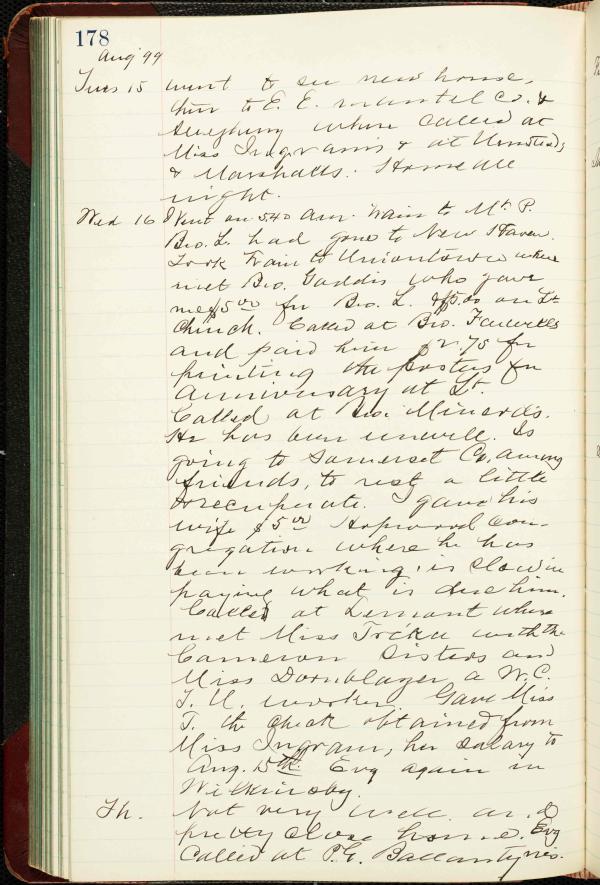 178
Aug '99
Tues 15 went to see new house,
then to E. E. mantel Co. &
Allegheny where called at
Miss Ingram's & at
& Marshalls. Home all
night.
Wed 16 Went on 540 am. train to Mt. P.
Bro. L. had gone to New Haven.
Took train to Uniontown where
met Bro. Gaddis who gave
me $5.00 for Bro. L. & $5.00 on Lt
Church. Called at Bro.
and paid him $2.75 for
printing the posters for
Anniversary at Lt.
Called at Bro. Minerds.
He has been unwell. Is
going to Somerset Co. among
friends, to rest a little
& recuperate. I gave his
wife $5.00 Hopwood Con-
gregation where he has
been working, is slow in
paying what is due him.
Called at Lemont where
met Miss Tricka with the
Cameron Sisters and
Miss Dornblazer a W.C.
T. U. worker. Gave Miss
T. the check obtained from
Miss Ingram, her salary to
Aug. 15th. Evg again in
Wilkinsbg.
Th. Not very well and
pretty close home. Evg
called at P.G. Ballantynes.